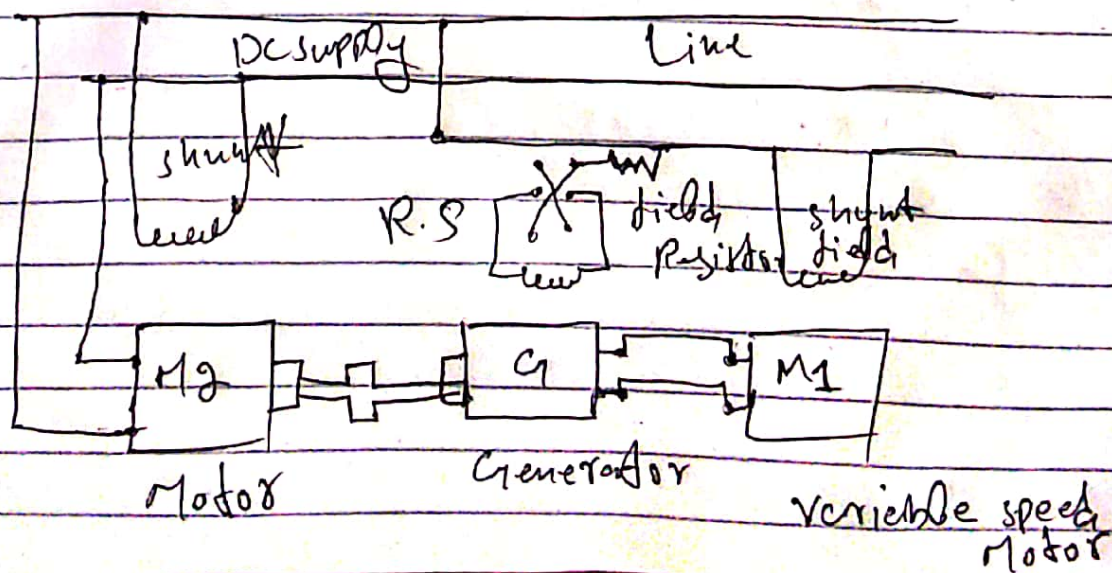 DC supply Line
shunt
R.S field shunt
Resistor field
M2 G M1
Motor Generator variable speed
Motor